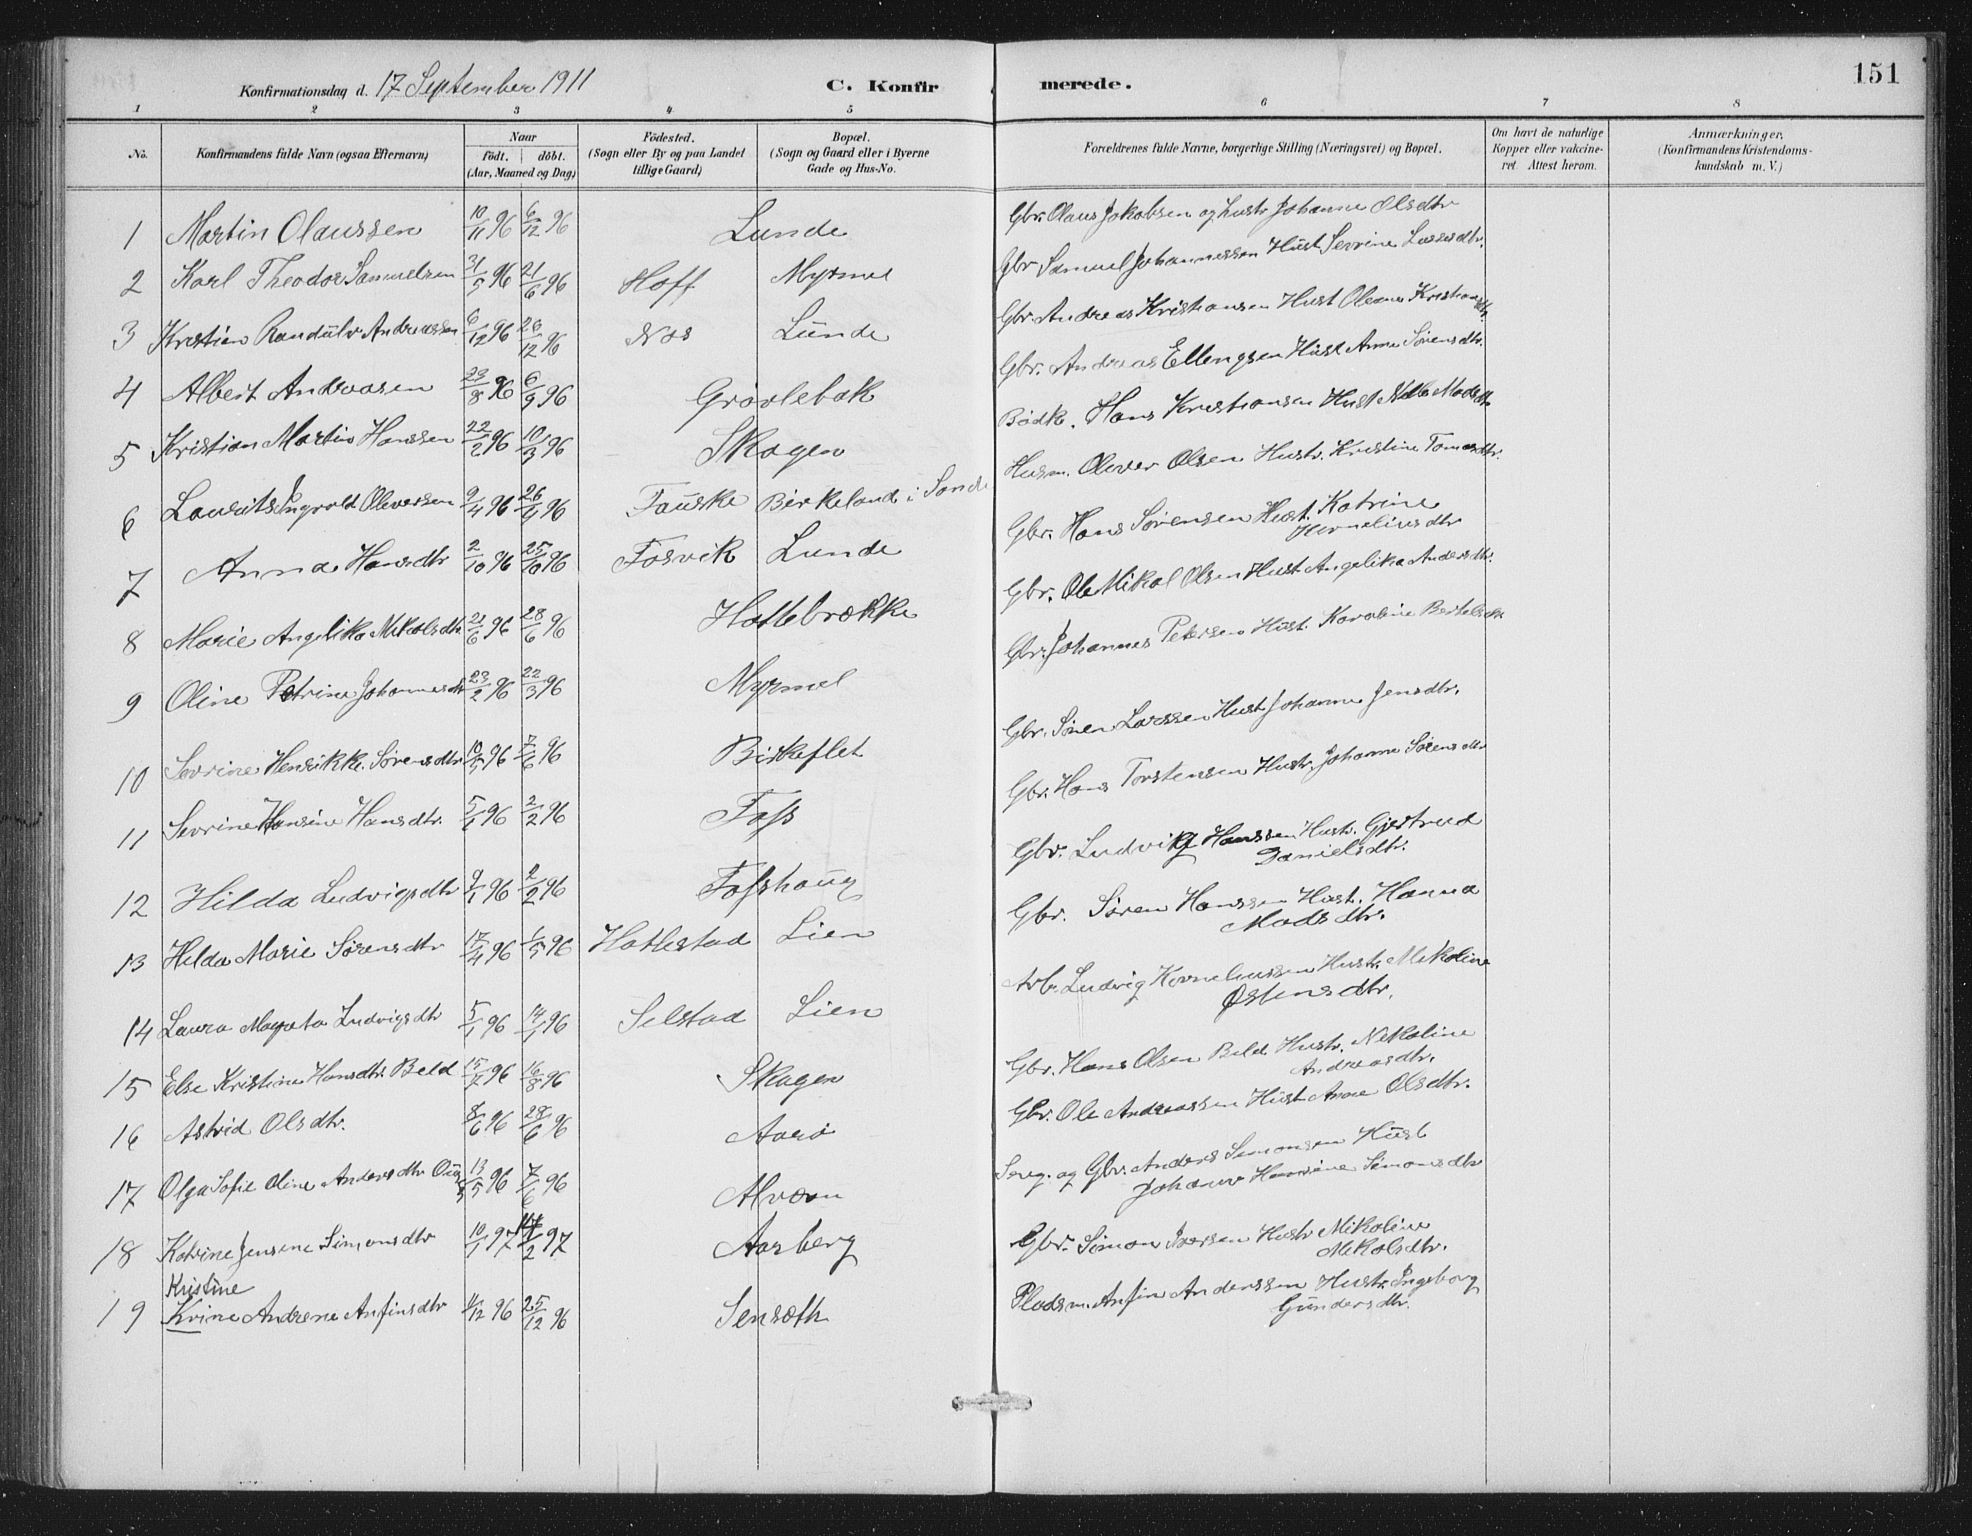 Konfirmationsdag d. 17 September 1911 C. Konfirmerede. 151
1 2 3 4 5 6 7 8
No. Konfirmandens fulde Navn (ogsaa Efternavn) Naar födt. döbt. (Aar, Maaned og Dag) Födested. (Sogn eller By og paa Landet tillige Gaard) Bopæl. (Sogn og Gaard eller i Byerne Gade og Hus-No. Forældrenes fulde Navne, borgerlige Stilling (Næringsvei) og Bopæl. Om havt de naturlige Kopper eller vakcineret. Attest herom. Anmærkninger, (Konfirmandens Kristendomskundskab m. V.)
1 Martin Olaussen 10/11 96 6/12 96 Lunde Gbr. Olaus Jakobsen og hustr Johanne Olsdtr
2 Karl Theodor Samuelsen 31/5 96 21/6 96 Hoff Myrmel Gbr Samuel Johannessen Hust Sevrine Lassesdtr.
3 Kristian Randulv Andreassen 6/12 96 26/12 96 Nos Lunde Gbr. Andreas Kristiansen Hust Oleane Kristiansdtr.
4 Albert Andreasen 23/8 96 6/9 96 Grøvlebak Gbr. Andreas Ellengsen Hust Anne Sørensdtr.
5 Kristian Martin Hanssen 22/2 96 10/3 96 Skogen Bødk. Hans Kristiansen Hust Madsdtr
6 Laurits Ingvold Oleversen 9/4 96 26/4 96 Fauske Birkeland i Sande Husm. Olever Olsen Hustr. Kristine Tomasdtr.
7 Anna Hansdtr 2/10 96 25/10 96 Fosvik Lunde Gbr. Hans Sørensen Hust. Katrine Korneliusdtr
8 Marie Angelika Mikalsdtr 21/6 96 28/6 96 Hatlebrække Gbr. Ole Mikal Olsen Hust Angelika Andersdtr.
9 Oline Petrine Johannesdtr 23/2 96 22/3 96 Myrmel Gbr. Johannes Petersen Hust. Karoline Bertelsdtr
10 Sevrine Henrikke Sørensdtr 10/5 96 7/6 96 Birkeflet Gbr. Søren Larssen Hust Johanne Jensdtr.
11 Sevrine Hansine Hansdtr. 5/1 96 2/2 96 Foss Gbr. Hans Torstensen Hustr. Johanne Sørensdtr
12 Hilda Ludvigsdtr 9/1 96 2/2 96 Fosshaug Gbr. Ludvig Hanssen Hustr. Gjertrud Danielsdtr.
13 Hilda Marie Sørensdtr 17/4 96 1/5 96 Hatlestad Lien Gbr. Søren Hanssen Hust. Hanna Madsdtr.
14 Laura Ludvigsdtr 5/1 96 14/1 96 Selstad Lien Arb. Ludvig Korneliussen Hustr. Mikoline Østensdtr.
15 Else Kristine Hansdtr. Beld 15/7 96 16/8 96 Skogen Gbr. Hans Olsen Beld Hustr. Nikoline Andreasdtr.
16 Astrid Olsdtr. 8/6 96 28/6 96 Aarø Gbr. Ole Andreassen Hust Anne Olsdtr.
17 Olga Sofie Oline Andersdtr 13/5 96 7/6 96 Alværn og Gbr. Anders Simonsen Hust Johanne Hansine Simonsdtr
18 Katrine Jensene Simonsdtr 10/1 97 14/2 97 Aarberg Gbr. Simon Iversen Hustr Mikoline Mikalsdtr.
Kristine
19 Krine Andrene Anfinsdtr 4/12 96 25/12 96 Senseth Pladsm. Anfin Anderssen Hustr. Ingeborg Gundersdtr.